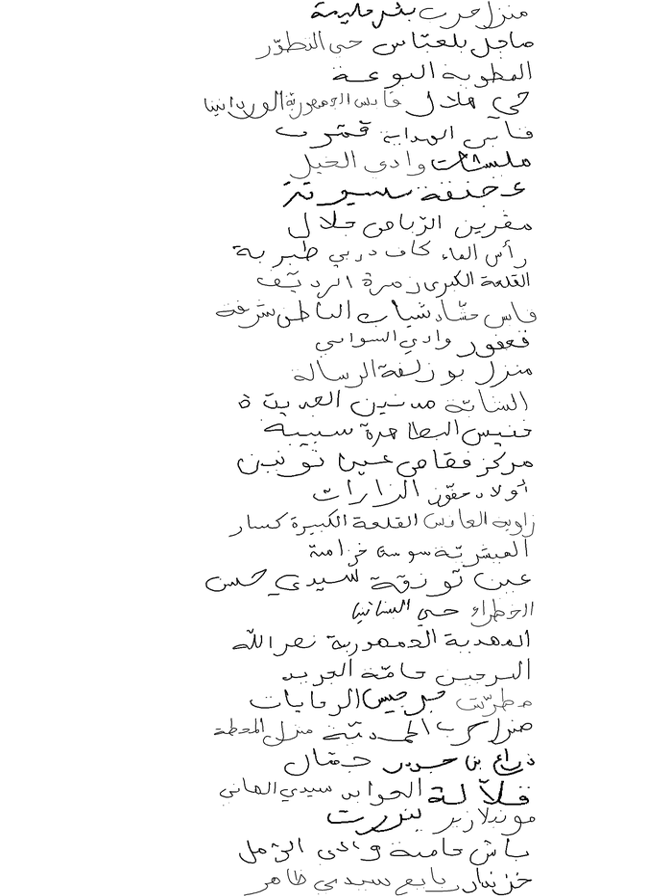 منزل حرب بئر مليمة
ماجل بلعبّاس حي التطوّر
المطوية البوعة
حي هلال قابس الجمهورية الوردانين
فنآبي الهداية قمرت
ملسّات وادي الخيل
خنقة
مقرين الرياض جلال
رأس الماء كاف دربي طبربة
القلعة الكبرى زمرة الرديّف
فاس حشّاد شباب الباطن شرفة
قعفور وادي السواسي
منزل بوزلفة الرسالة
السّانية مدنين الحديثة
خنيس البطاهرة سبيبة
مركز فقاص عين نونين
أولاد حفّوز الزارات
زاوية العانس القلعة الكبيرة كسار
المبشريّة سوسة خزامة
عين تونقة سيدي حسن
الخطراء حي
المهدية الجمهورية نصر الله
البرجين حامّة الجريد
مطرّت جرجيس الرمايات
منزل حرب المحطة
ذراع بن جمّال
قلاّلة الحوايد سيدي الهاني
مونبلازير بنزرت
باش حامبة وادي الرمل
خزندار سيدي ظاهر